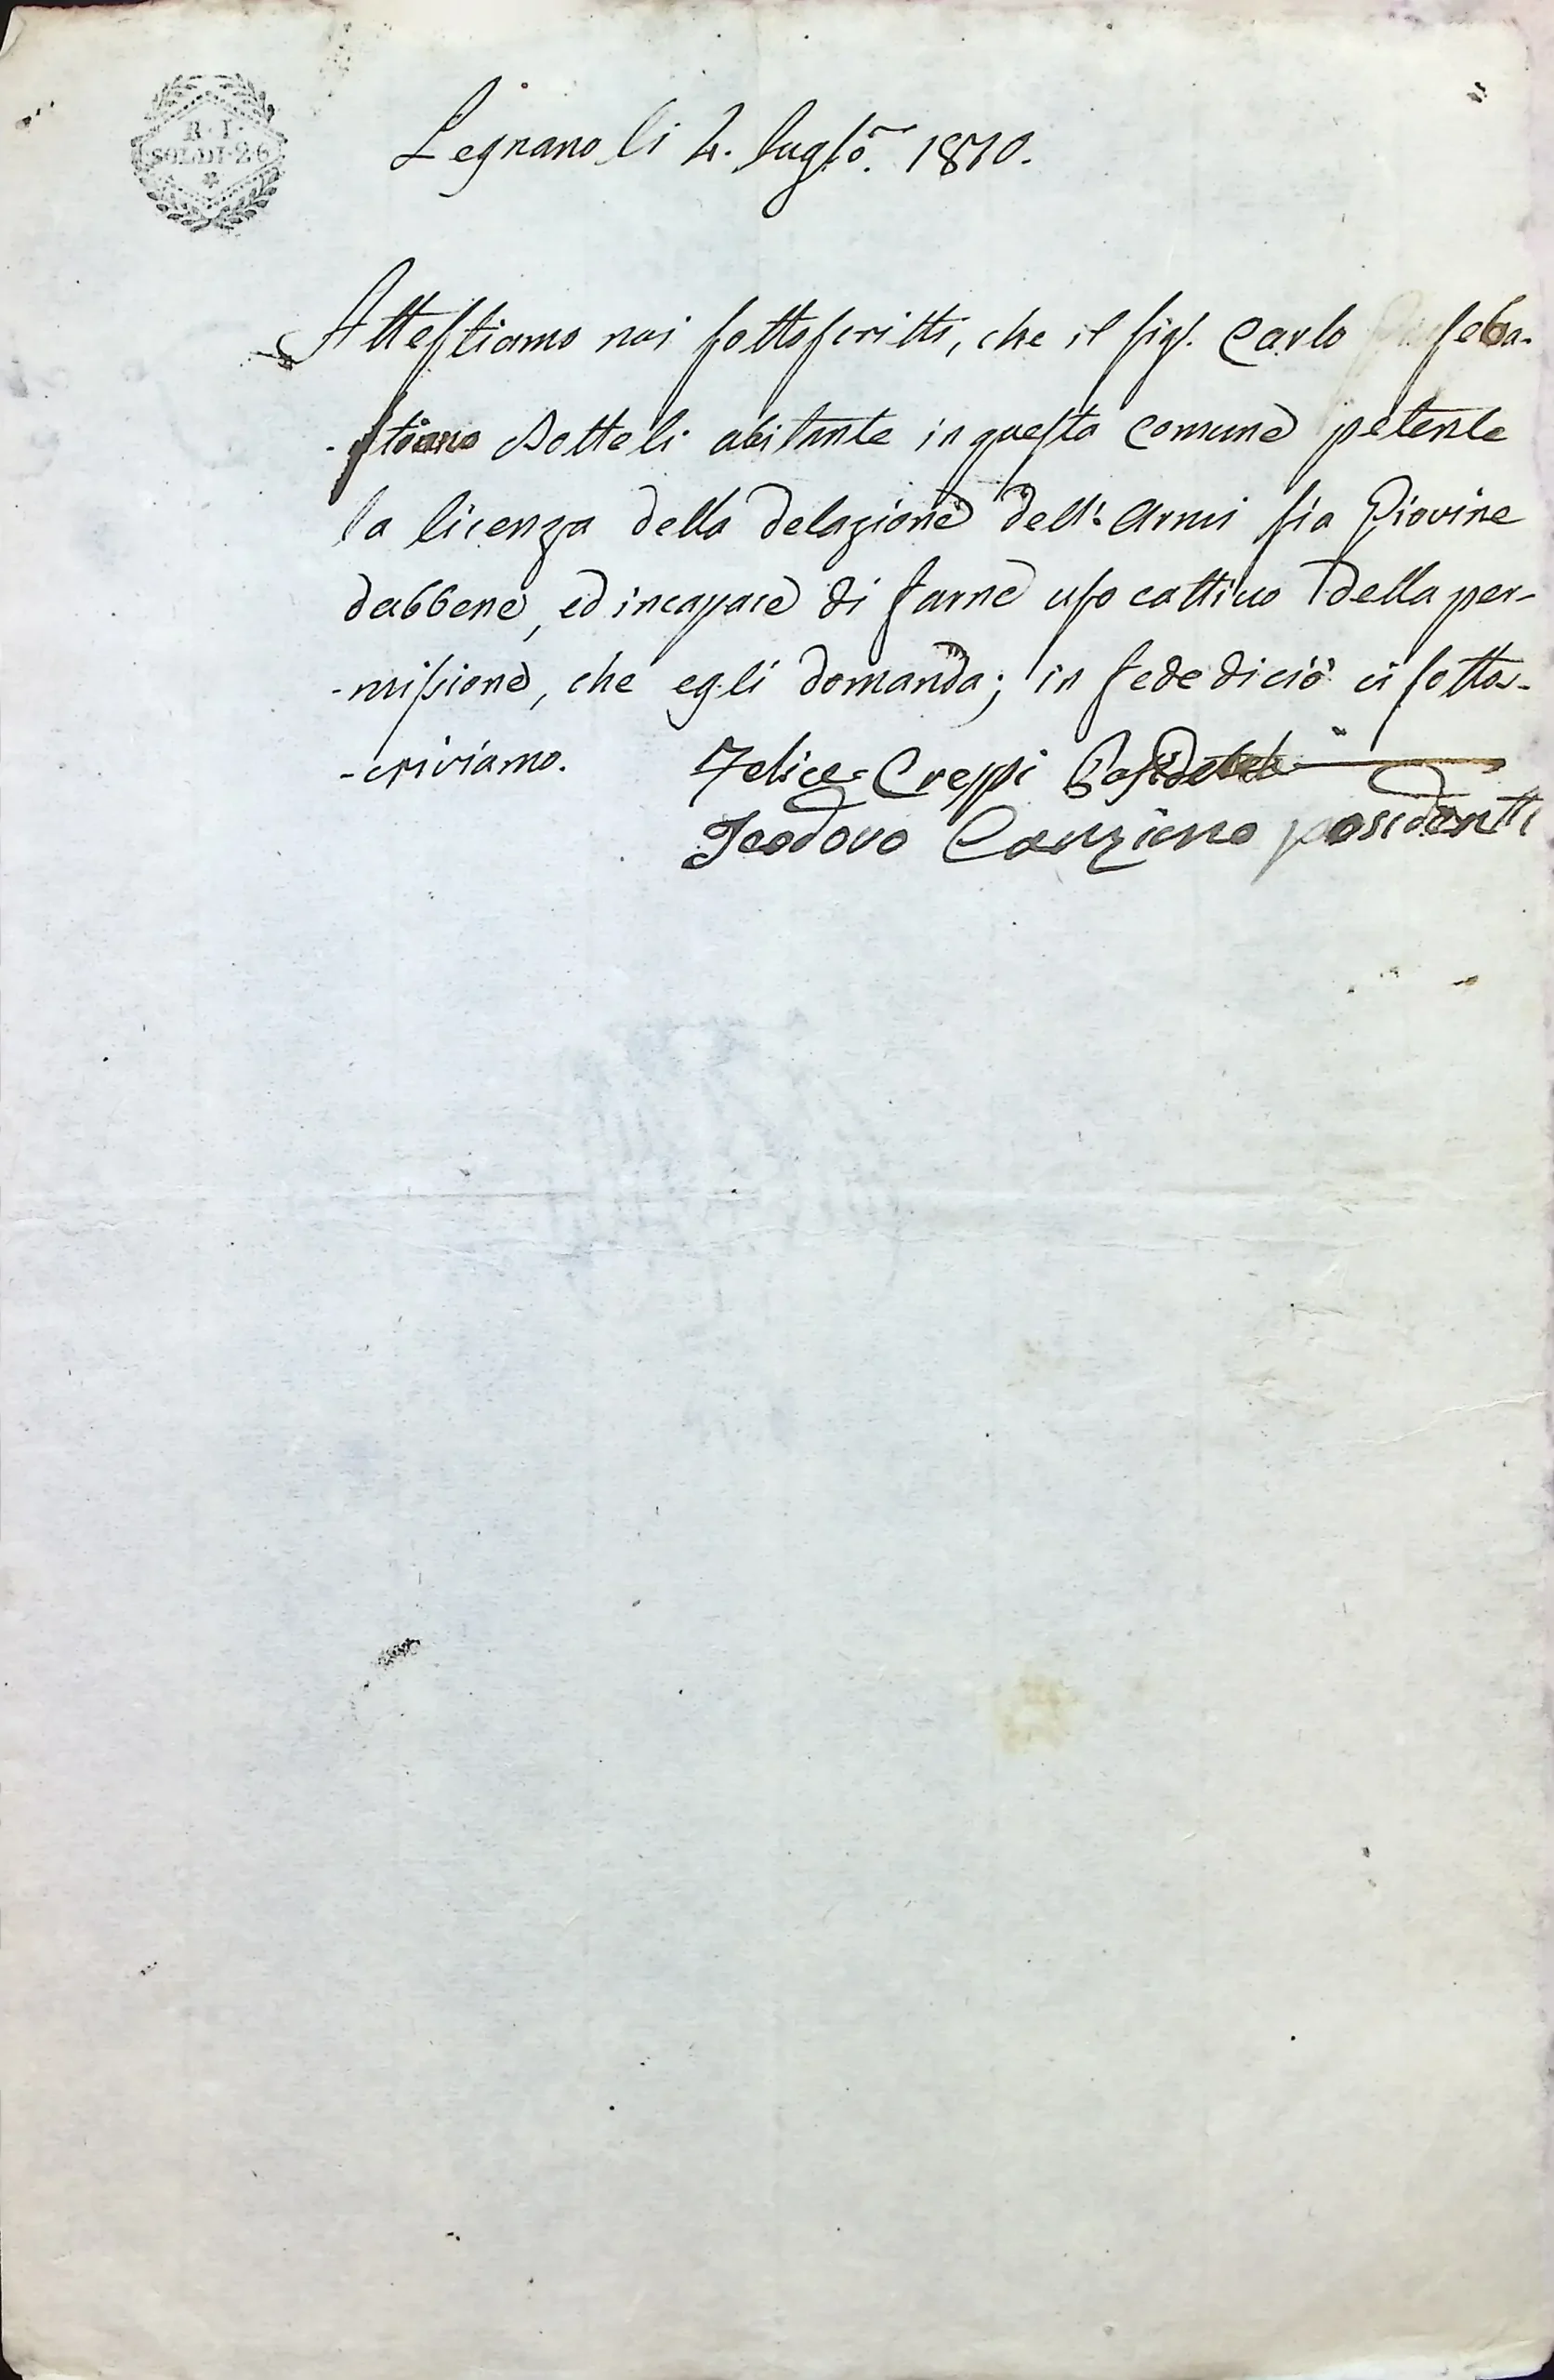 R. I.
SOLDI·26
Legnano li 4. luglio. 1810.
Attestiamo noi sottoscritti, che il sig.r Carlo seba-
-stiano Botteli abitante in questa Comune petente
la licenza della delazione dell'Armi sia Giovine
dabbene, ed incapace di farne uso cattivo della per-
-missione, che egli domanda; in fede di ciò ci sottos-
-criviamo. Felice Creppi
Teodoro Canziano posidenti